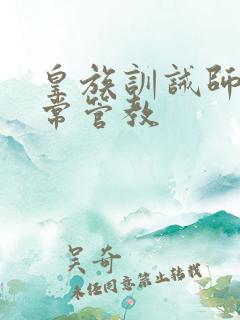 皇族訓誡師日
常管教
吴奇
未经同意禁止转载